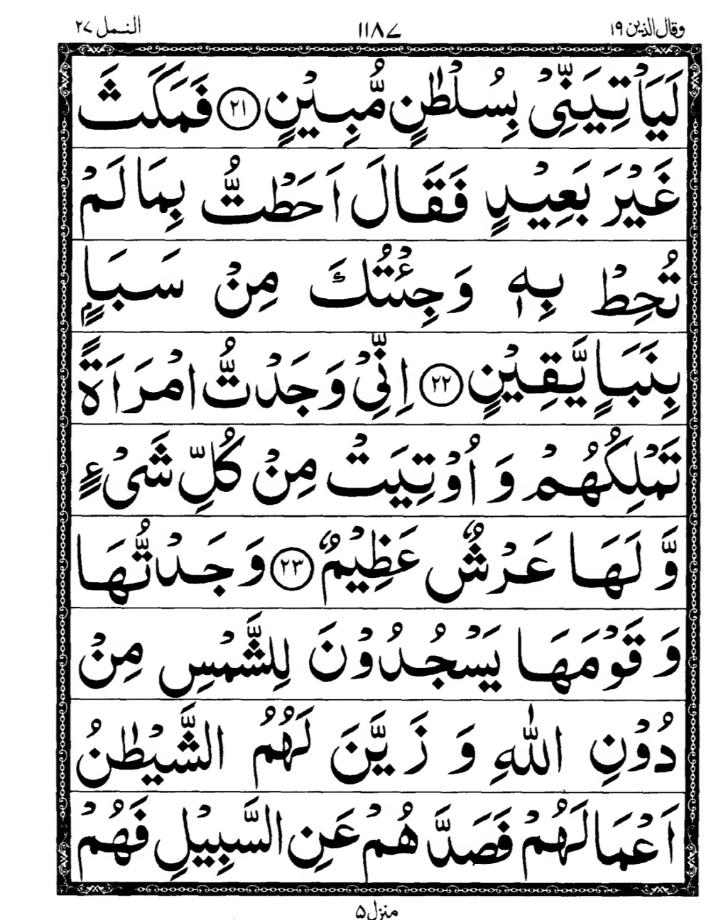 وقال الذين ١٩ ١١٨٧ النمل ٢٧
لَيَاْتِيَنِّيْ بِسُلْطٰنٍ مُّبِيْنٍ ﴿٢١﴾ فَمَكَثَ
غَيْرَ بَعِيْدٍ فَقَالَ اَحَطْتُّ بِمَا لَمْ
تُحِطْ بِهٖ وَجِئْتُكَ مِنْ سَبَاٍۭ
بِنَبَاٍ يَّقِيْنٍ ﴿٢٢﴾ اِنِّيْ وَجَدْتُّ امْرَاَةً
تَمْلِكُهُمْ وَاُوْتِيَتْ مِنْ كُلِّ شَيْءٍ
وَّلَهَا عَرْشٌ عَظِيْمٌ ﴿٢٣﴾ وَجَدْتُّهَا
وَقَوْمَهَا يَسْجُدُوْنَ لِلشَّمْسِ مِنْ
دُوْنِ اللّٰهِ وَزَيَّنَ لَهُمُ الشَّيْطٰنُ
اَعْمَالَهُمْ فَصَدَّهُمْ عَنِ السَّبِيْلِ فَهُمْ
منزل ٥